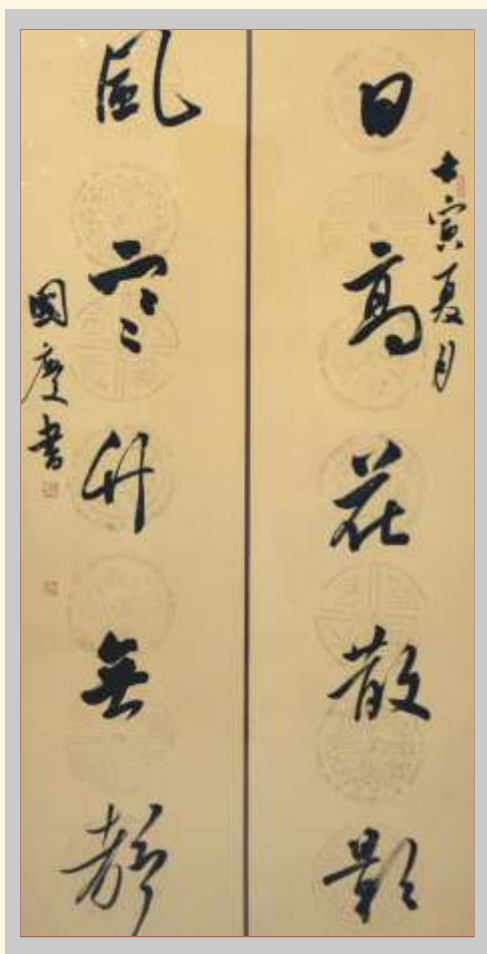 壬寅夏月
日高花散影
風寒竹無靜
國慶書